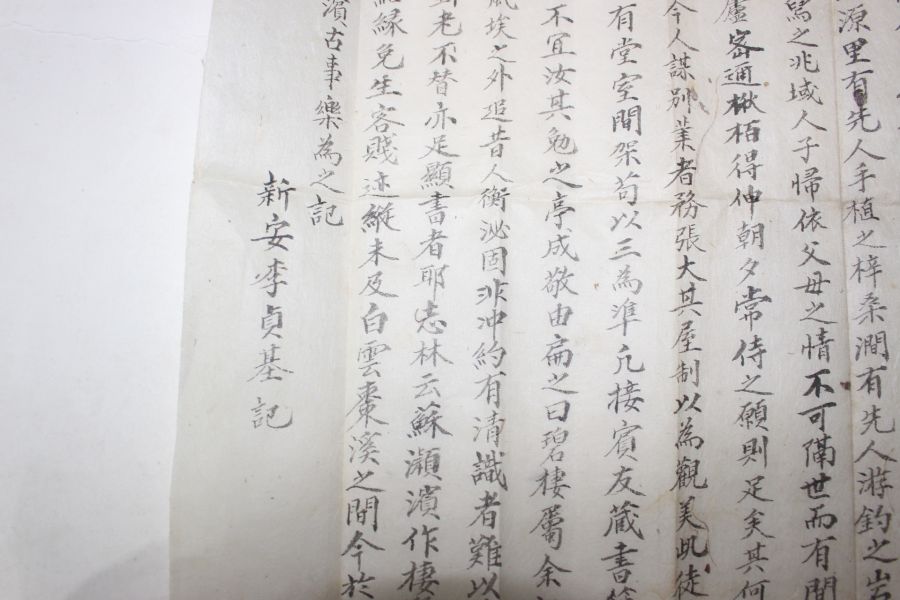 源里有先人手植之梓桑澗有先人游釣之
之兆域人子帰依父母之情不可隔世而有間
虛客通楸栢得伸朝夕常侍之願則足矣其何
今人謀别業者務張大其屋制以為觀美此徒
有堂室間架苟以三為準凡接賓友蔵書
不宜汝其勉之亭成敬由扁之曰碧棲屬余
埃之外追昔人衡泌固非沖約有清識者難以
老不替亦足顯書者耶志林云蘇瀬濱作棲
緑免生客賤迹縱未及白雲棗溪之間今於
濱古事樂為之記
新安李貞基記